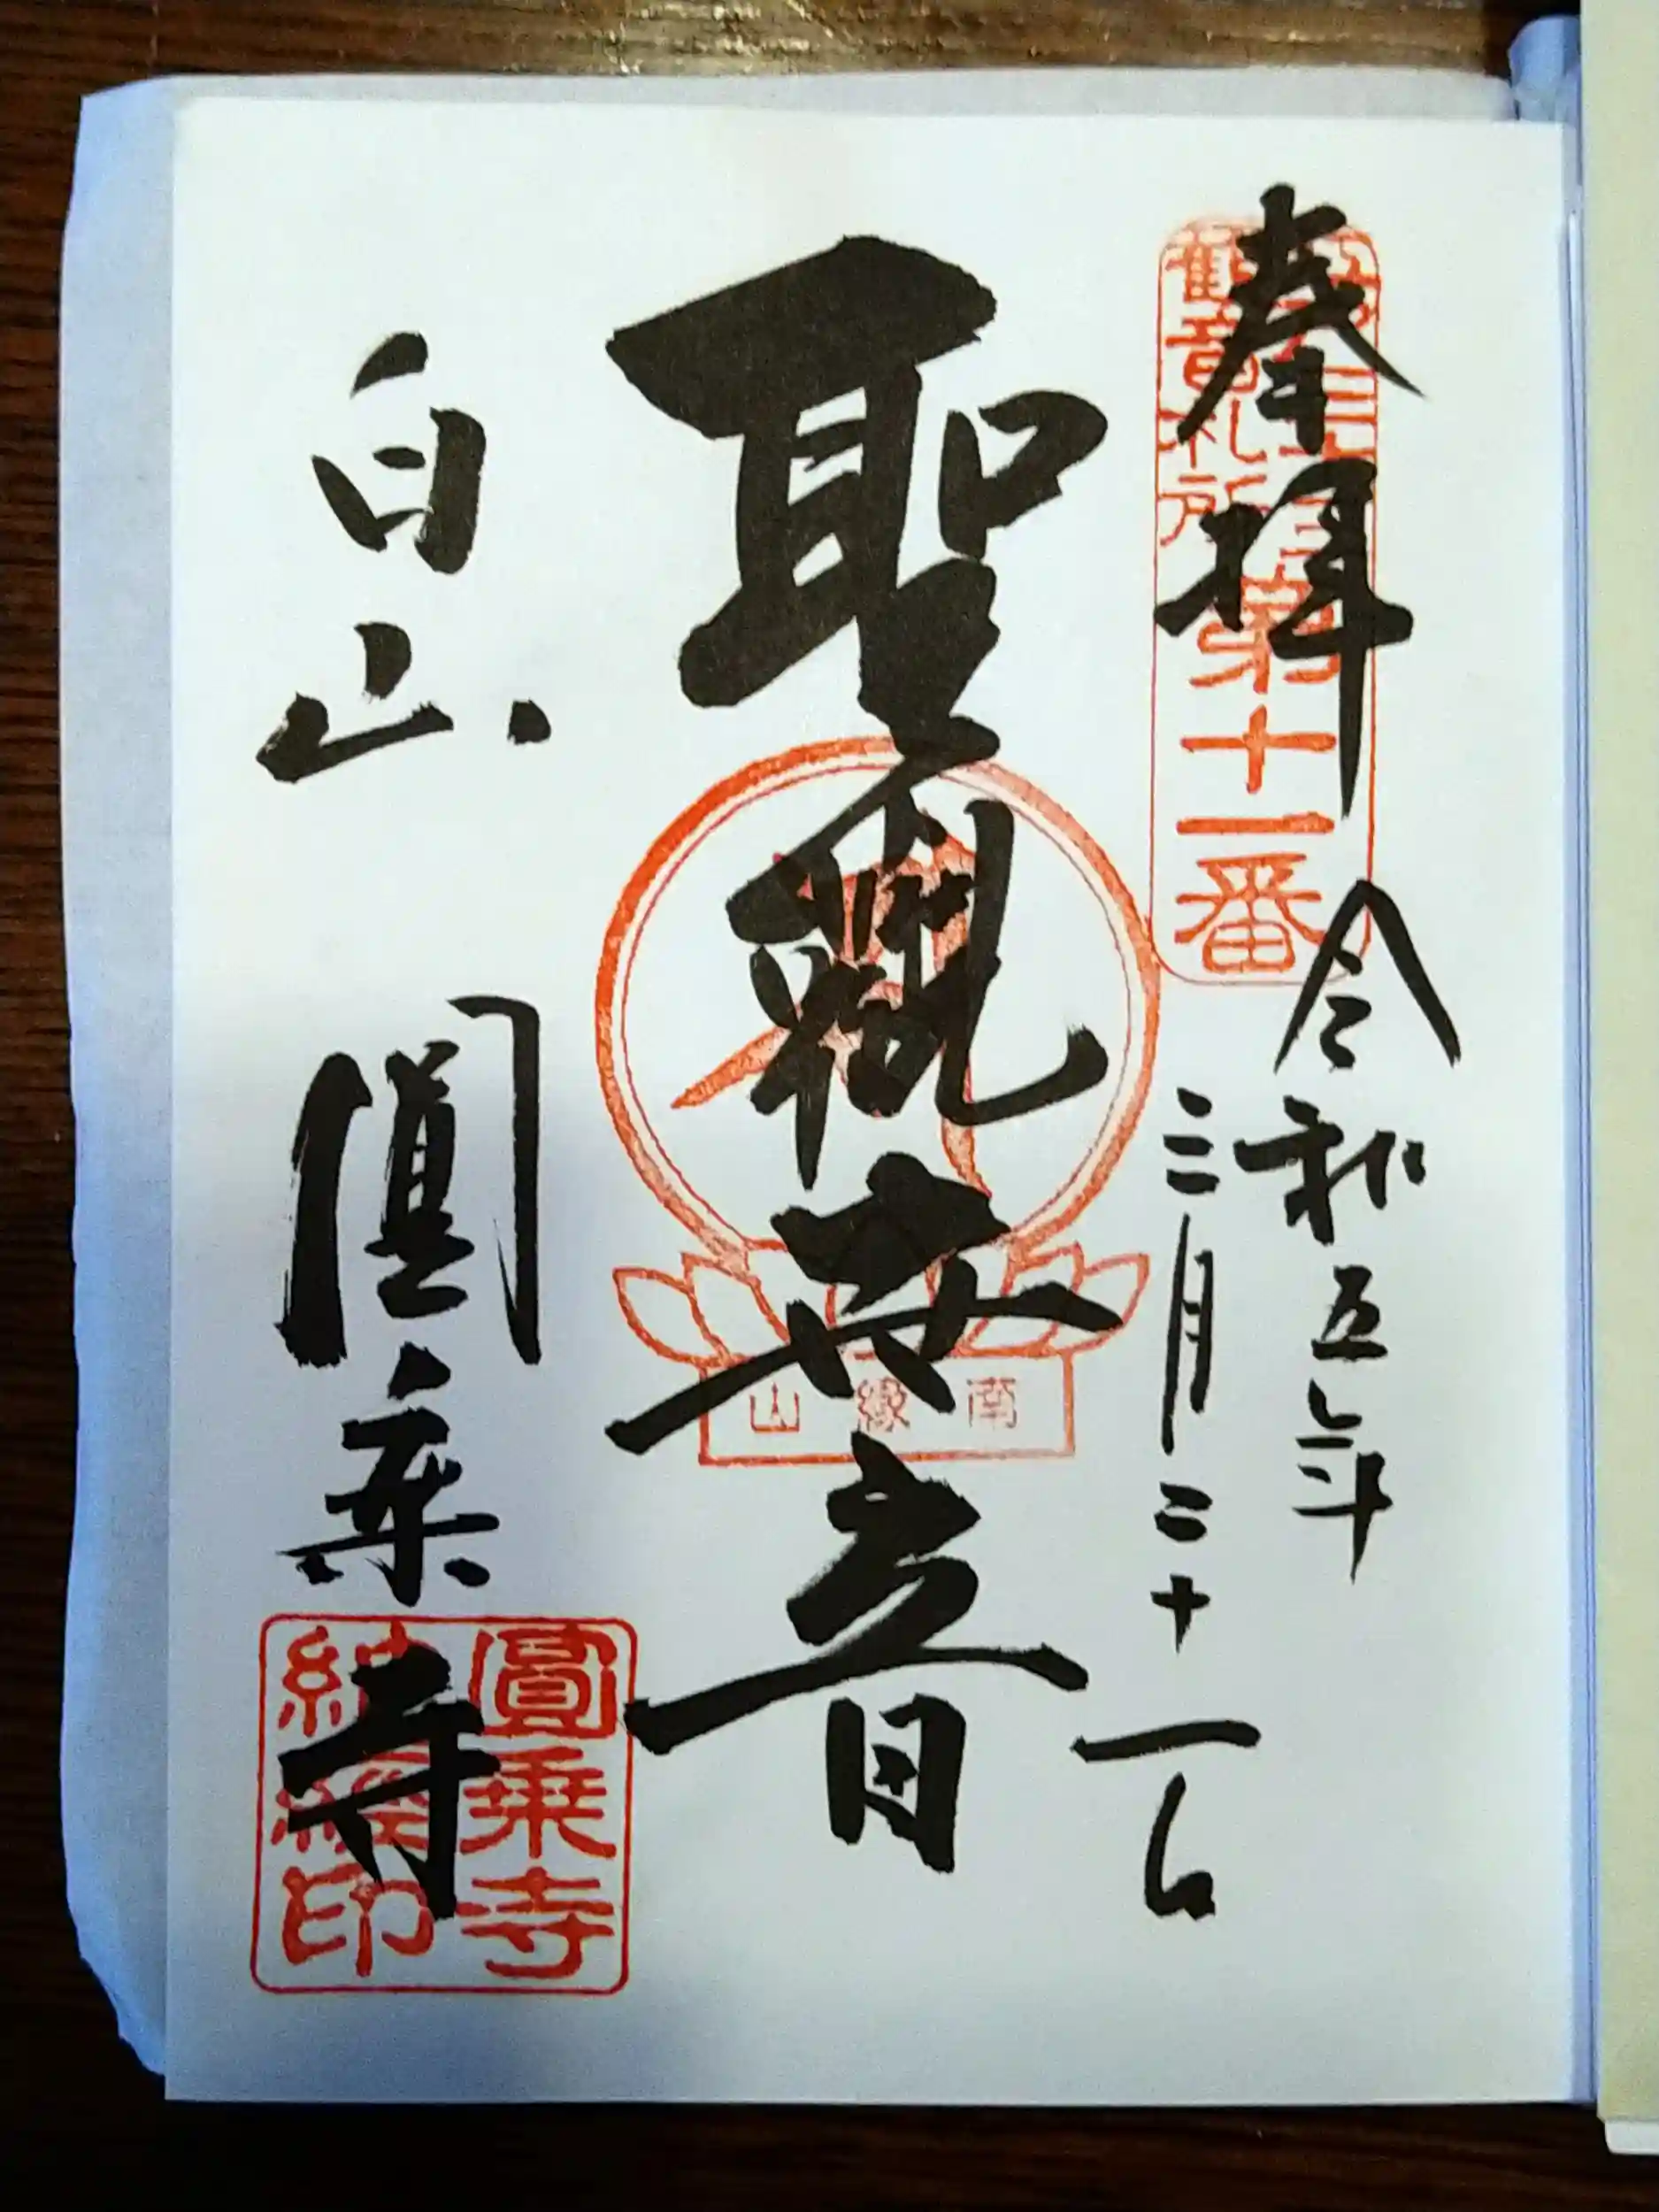 奉拝
令和五年
三月二十一日
第十一番
観音札所
聖観世音
南縁山
白山
圓乗寺
圓乗寺
納經印